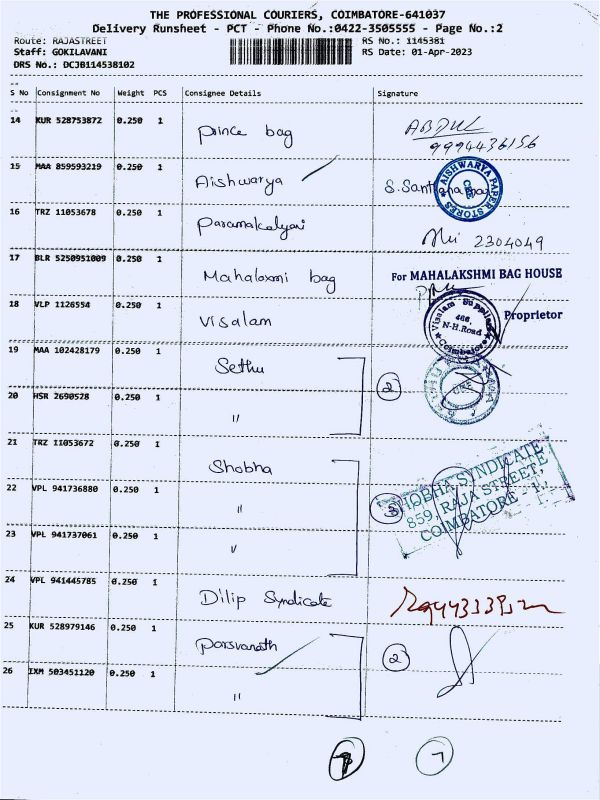 THE PROFESSIONAL COURIERS, COIMBATORE-641037
Delivery Runsheet - PCT - Phone No.:0422-3505555 - Page No.:2
Route: RAJASTREET RS No.: 1145381
Staff: GOKILAVANI RS Date: 01-Apr-2023
DRS No.: DCJB114538102
S No Consignment No Weight PCS Consignee Details Signature
14 KUR 528753872 0.250 1 Prince bag ABDUL
9994436156
15 MAA 859593219 0.250 1 Aishwarya AISHWARYA PAPER STORES CBE
16 TRZ 11053678 0.250 1 Paramakalyani 2304049
17 BLR 5250951009 0.250 1 Mahalaxmi bag For MAHALAKSHMI BAG HOUSE
Proprietor
18 VLP 1126554 0.250 1 Visalam Visalam Supplies 466, N-H.Road Coimbatore
19 MAA 102428179 0.250 1 Sethu 2
20 HSR 2690528 0.250 1 "
21 TRZ 11053672 0.250 1 Shobha
22 VPL 941736880 0.250 1 " 3 SHOBHA SYNDICATE
859, RAJA STREET
COIMBATORE - 1.
23 VPL 941737061 0.250 1 "
24 VPL 941445785 0.250 1 Dilip Syndicate
25 KUR 528979146 0.250 1 Parsvanath 2
26 IXM 503451120 0.250 1 "
7